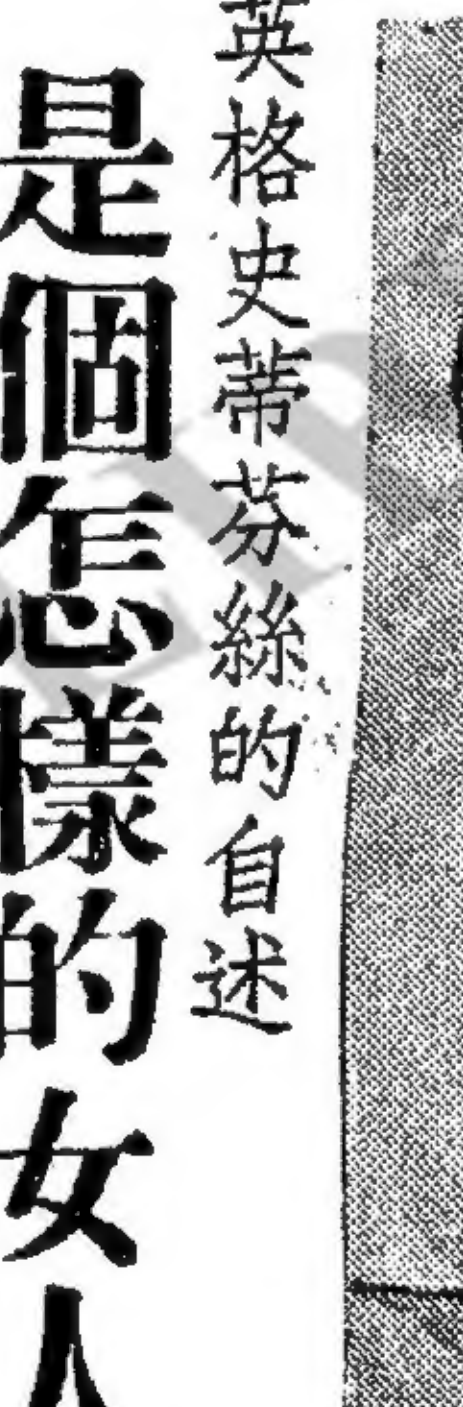 英格史蒂芬絲的自述
是個怎樣的女人